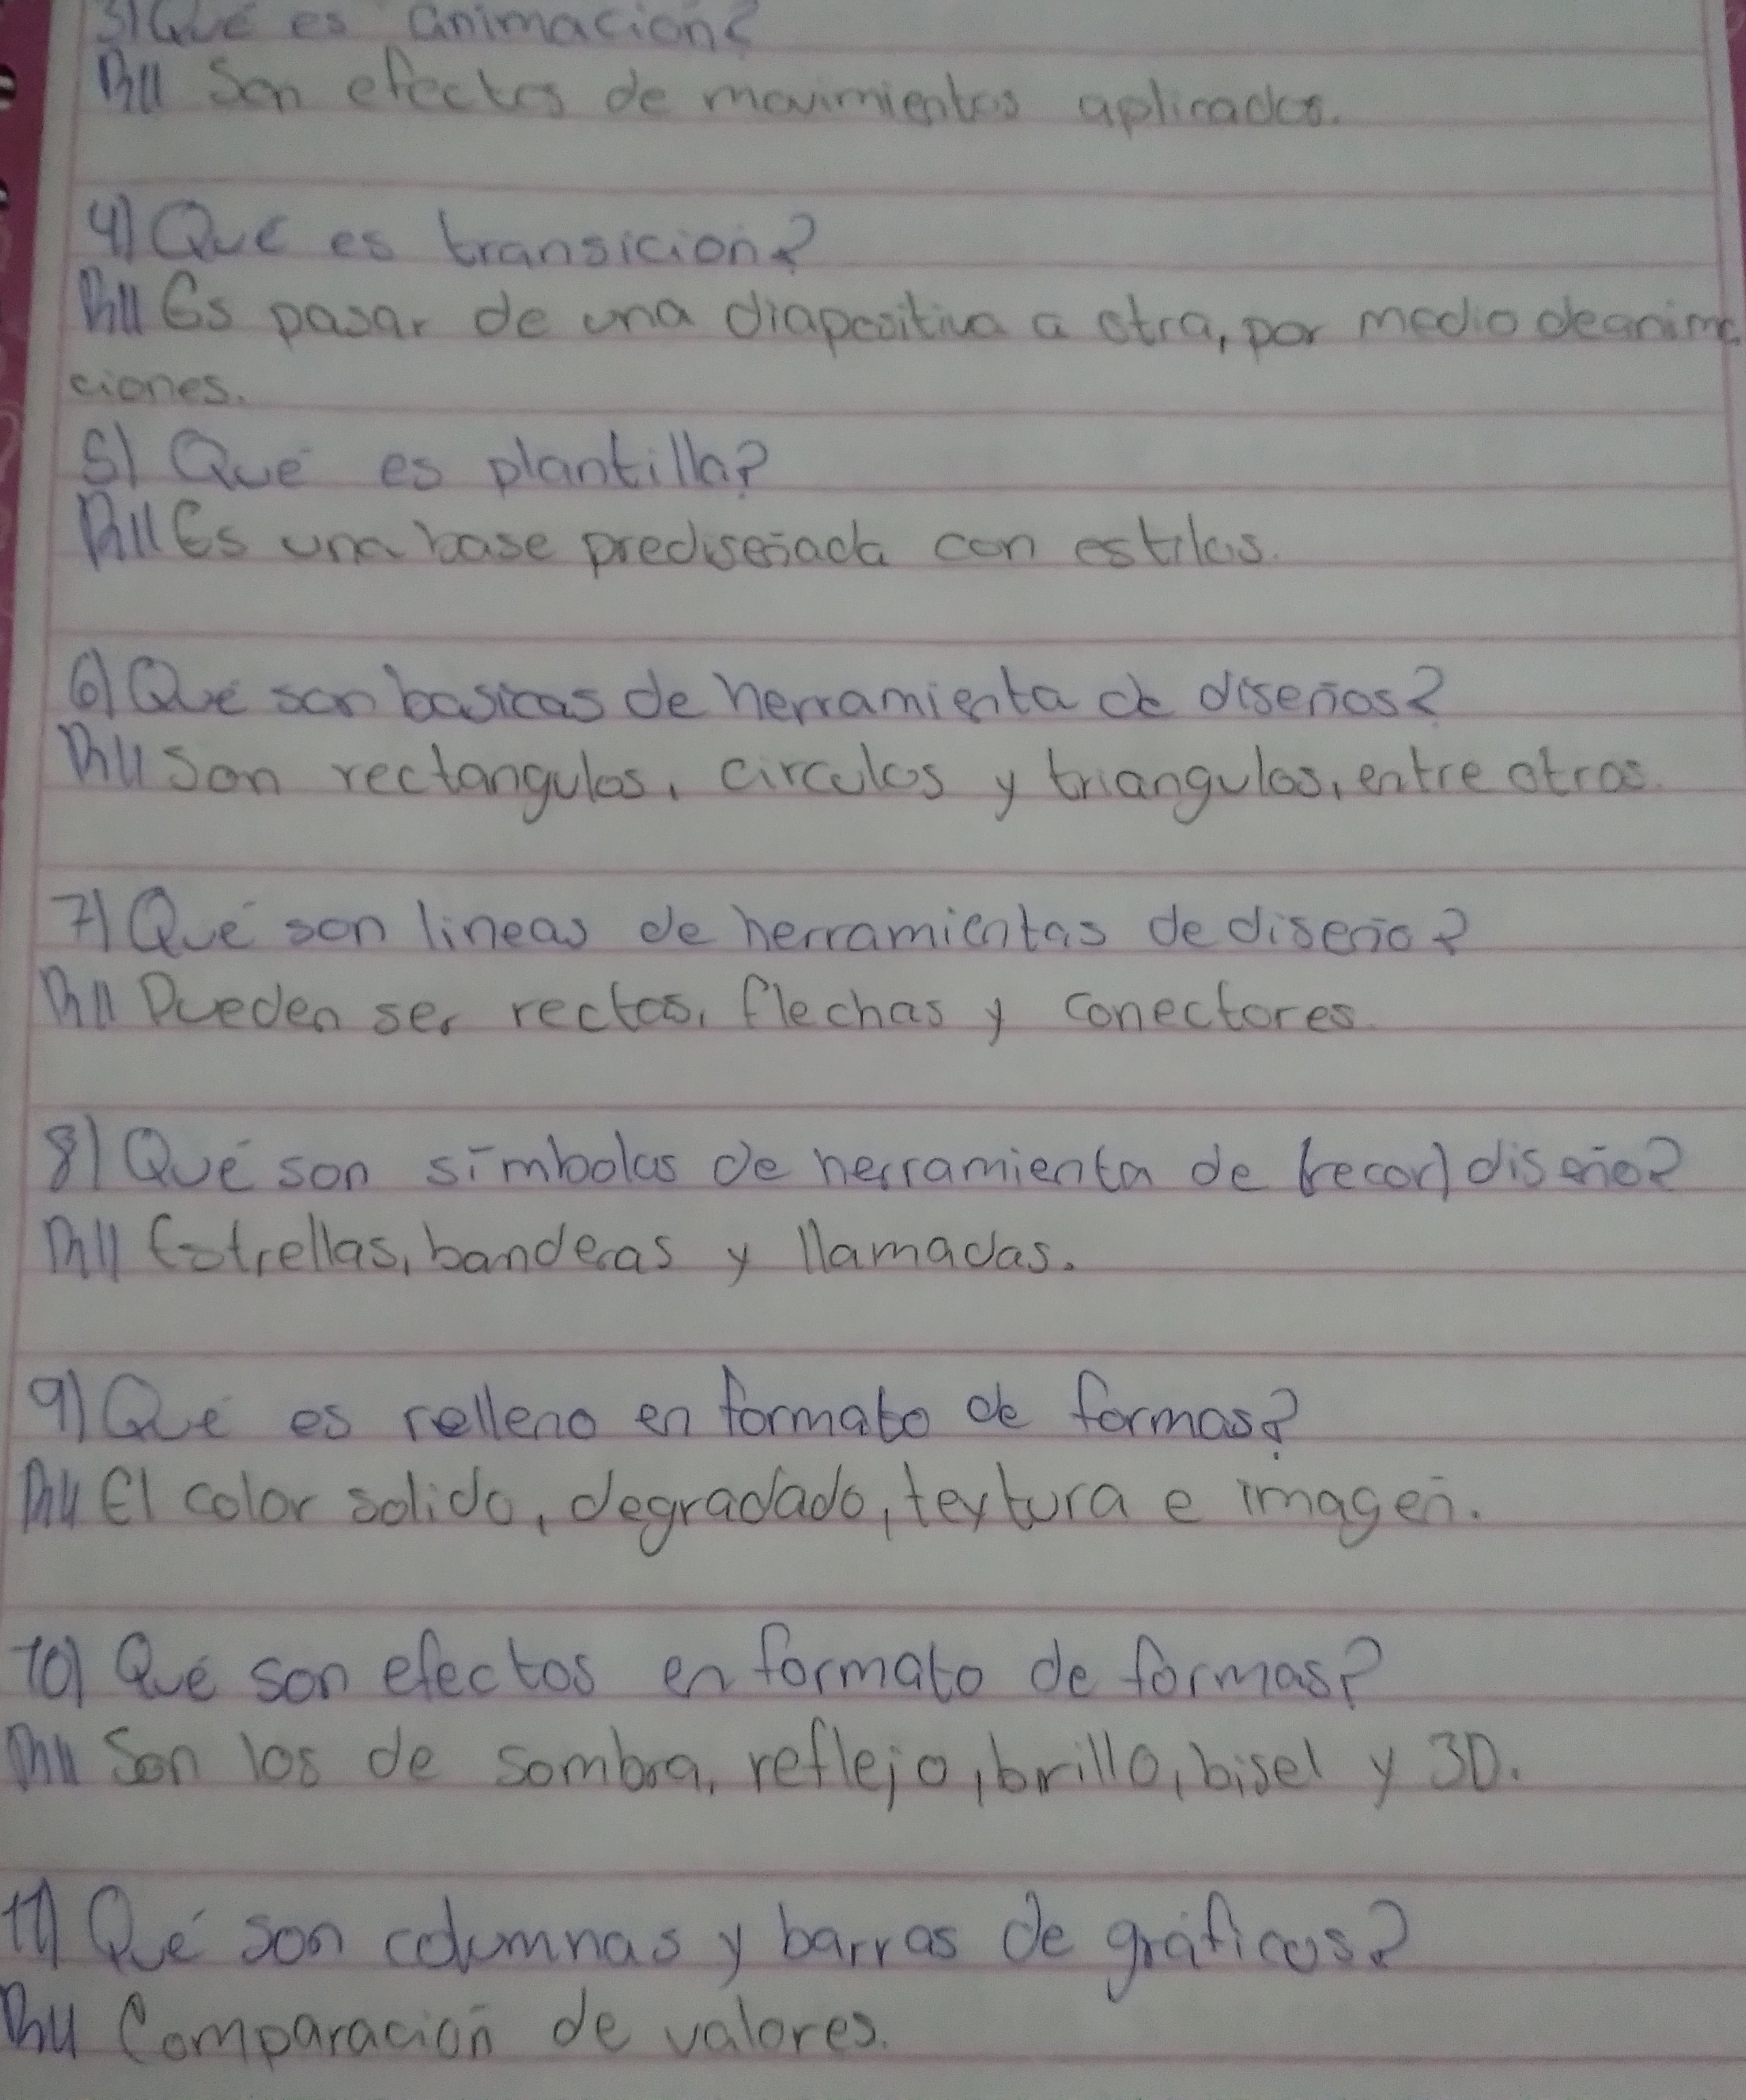 3) Qué es animacion?
R// Son efectos de movimientos aplicados.
4) Qué es transicion?
R// Es pasar de una diapositiva a otra, por medio de anima
ciones.
5) Qué es plantilla?
R// Es una base prediseñada con estilos.
6) Qué son basicas de herramienta de diseños?
R// Son rectangulos, circulos y triangulos, entre otros.
7) Qué son lineas de herramientas de diseño?
R// Pueden ser rectas, flechas y conectores.
8) Qué son símbolos de herramienta de (recor) diseño?
R// Estrellas, banderas y llamadas.
9) Qué es relleno en formato de formas?
R// El color solido, degradado, textura e imagen.
10) Qué son efectos en formato de formas?
R// Son los de sombra, reflejo, brillo, bisel y 3D.
11) Qué son columnas y barras de gráficos?
R// Comparación de valores.